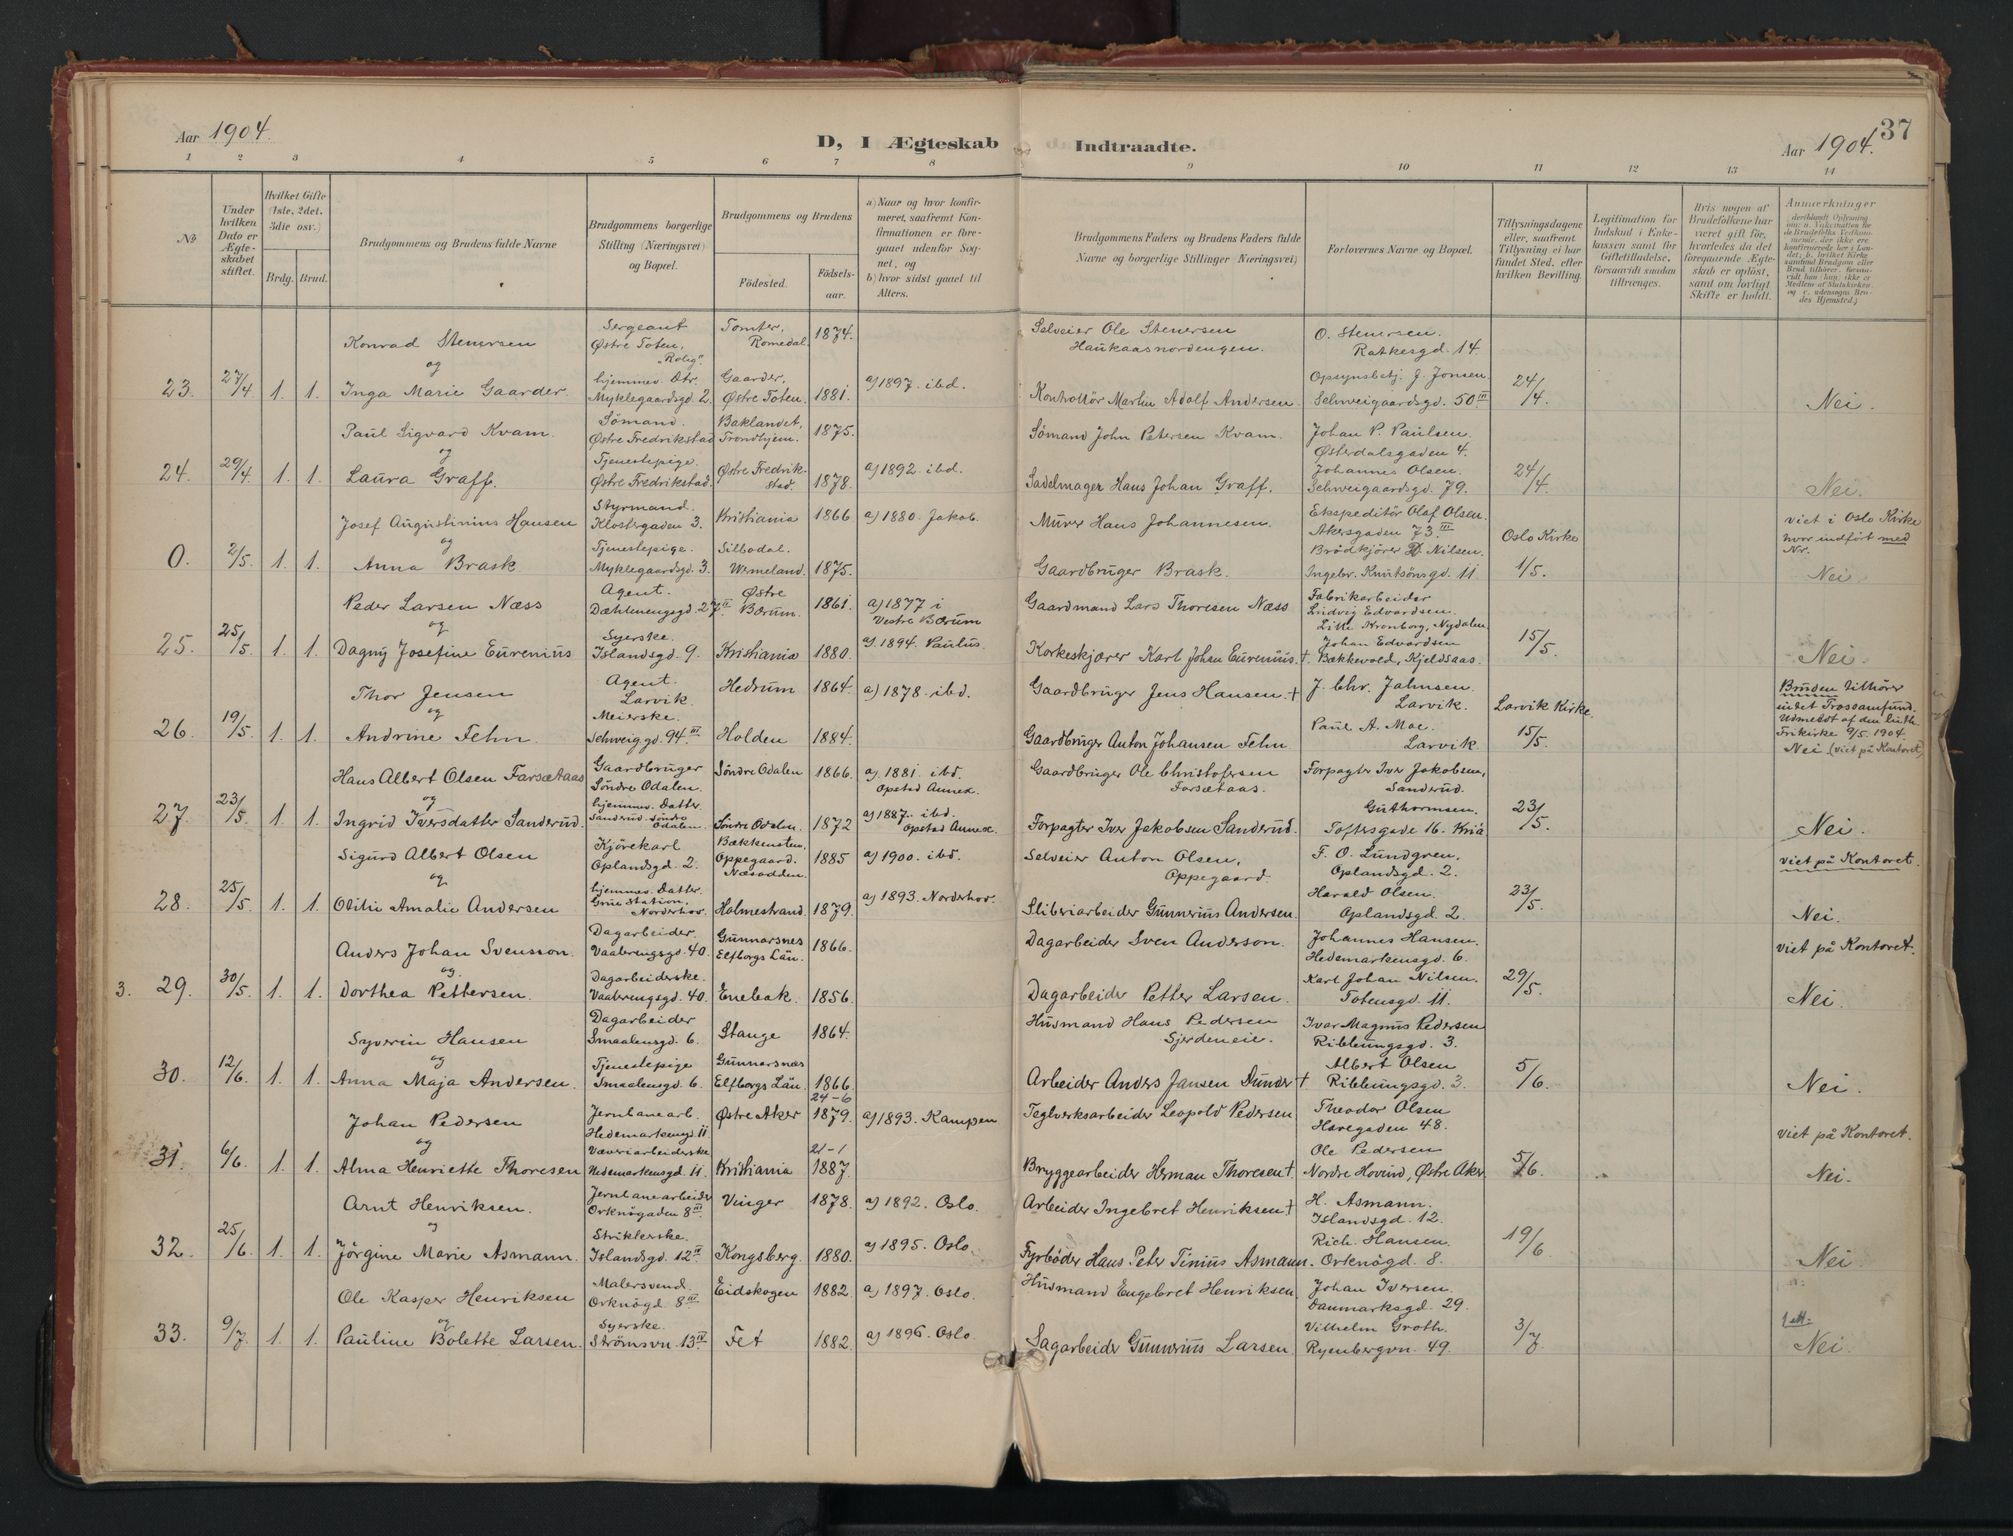 Aar 1904.
D, I Ægteskab Indtraadte.
37
Aar 1904.
1 2 3 4 5 6 7 8 9 10 11 12 13 14
№
Under hvilken Dato er Ægteskabet stiftet.
Hvilket Gifte (1ste, 2det, 3die osv.)
Brdg. Brud.
Brudgommens og Brudens fulde Navne
Brudgommens borgerlige Stilling (Næringsvei) og Bopæl.
Brudgommens og Brudens
Fødested.
Fødselsaar.
a) Naar og hvor konfirmeret, saafremt Konfirmationen er foregaaet udenfor Sognet, og
b) hvor sidst gaaet til Alters.
Brudgommens Faders og Brudens Faders fulde Navne og borgerlige Stillinger (Næringsvei)
Forlovernes Navne og Bopæl.
Tillysningsdagene eller, saafremt Tillysning ei har fundet Sted, efter hvilken Bevilling.
Legitimation for Indskud i Enkekassen samt for Giftetilladelse, forsaavidt saadan tiltrænges.
Hvis nogen af Brudefolkene har været gift før, hvorledes da det foregaaende Ægteskab er opløst, samt om lovligt Skifte er holdt.
Anmærkninger
Konrad Stenersen
Sergeant Østre Toten, "Rolig"
Tomter, Romedal
1874.
Selveier Ole Stenersen Haukaasnordengen.
O. Stenersen. Ratkesgd. 14.
og
23. 27/4 1. 1. Inga Marie Gaarder.
hjemmev. Dtr. Myklegaardsgd. 2.
Gaarder, Østre Toten.
1881.
a) 1897. ibd.
Kontrollör Martin Adolf Andersen.
Opsynsbetj. J. Jonsen. Schweigaardsgd. 50 III
24/4.
Nei.
Paul Sigvard Kvam.
Sömand. Østre Fredrikstad
Baklandet, Trondhjem.
1875.
Sömand John Petersen Kvam.
Johan P. Paulsen. Østerdalsgaden 4.
og
24. 29/4. 1. 1. Laura Graff.
Tjenestepige. Østre Fredrikstad.
Østre Fredrikstad.
1878.
a) 1892. ibd.
Sadelmager Hans Johan Graff.
Johannes Olsen. Schweigaardsgd. 79.
24/4.
Nei.
Josef Augustinius Hansen
Styrmand. Klostergaden 3.
Kristiania
1866
a) 1880. Jakob.
Murer Hans Johannesen.
Ekspeditör Olaf Olsen. Akersgaden 73 III
Oslo Kirke
viet i Oslo Kirke hvor indført med Nr.
og
0. 2/5. 1. 1. Anna Brask
Tjenestepige. Myklegaardsgd. 3.
Silbodal. Wermeland.
1875.
Gaardbruger Brask.
Brödkjörer D. Nilsen. Ingebr. Knutsönsgd. 11
1/5.
Nei
Peder Larsen Næss
Agent. Dæhlenengsgd. 27 II
Østre Bærum.
1861.
a) 1877 i Vestre Bærum
Gaardmand Lars Thoresen Næss
Fabrikarbeider Ludvig Edvardsen. Lille Kronborg, Nydalen
og
25. 25/5. 1. 1. Dagny Josefine Eurenius
Syerske. Islandsgd. 9.
Kristiania
1880.
a). 1894. Paulus.
Korkeskjærer Karl Johan Eurenius. +
Johan Edvardsen Bækkevold, Kjeldsaas.
15/5.
Nei.
Thor Jensen
Agent. Larvik.
Hedrum
1864.
a) 1878. ibd.
Gaardbruger Jens Hansen. +
J. Chr. Jahnsen. Larvik.
Larvik Kirke.
Bruden tilhörer intet Trossamfund. Udmeldt af den luth. Frikirke 9/5. 1904.
og
26. 19/5. 1. 1. Andrine Fehn.
Meierske. Schweiggd. 94 III
Holden
1884.
Gaardbruger Anton Johansen Fehn
Paul A. Moe. Larvik
15/5.
Nei (viet på Kontoret)
Hans Albert Olsen Farsætaas
Gaardbruger Söndre Odalen.
Søndre Odalen
1866.
a) 1881. ibd. Opstad Annex.
Gaardbruger Ole Christofersen Farsætaas.
Forpagter Iver Jakobsen, Sanderud.
og
27. 23/5 1. 1. Ingrid Iversdatter Sanderud.
hjemmev. Datter. Sanderud. Söndre Odalen.
Søndre Odalen.
1872
a) 1887. ibd. Opstad Annex.
Forpagter Iver Jakobsen Sanderud.
Guthormsen. Toftesgade 16. Kria
23/5.
Nei.
Sigurd Albert Olsen
Kjörekarl Oplandsgd. 2.
Bækkensten, Oppegaard. Næsodden.
1885
a) 1900. ibd.
Selveier Anton Olsen, Oppegaard.
F. O. Lundgren, Oplandsgd. 2.
viet på Kontoret.
og
28. 25/5. 1. 1. Otilie Amalie Andersen
hjemmev. Datter. Grue Station, Norderhov.
Holmestrand.
1879.
a) 1893. Norderhov.
Sliberiarbeider Gunnerius Andersen.
Harald Olsen. Oplandsgd. 2
23/5.
Nei.
Anders Johan Svensson.
Dagarbeider. Vaalerengsgd. 40.
Gunnarsnes Elfborgs Län.
1866.
Dagarbeider Sven Anderson.
Johannes Hansen. Hedemarkensgd. 6.
viet på Kontoret.
og
3. 29. 30/5. 1. 1. Dorthea Pettersen.
Dagarbeiderske. Vaalerengsgd. 40.
Enebak.
1856.
Dagarbeider Petter Larsen.
Karl Johan Nilsen. Totensgd. 11.
29/5.
Nei.
Syverin Hansen
Dagarbeider Smaalensgd. 6.
Stange
1864.
Husmand Hans Pedersen Gjerdeneie.
Ivar Magnus Pedersen Ribbungsgd. 3.
og
30. 12/6. 1. 1. Anna Maja Andersen.
Tjenestepige Smaalensgd. 6.
Gunnarsnæs Elfborgs Län.
1866.
Arbeider Anders Jansen Dunder +
Albert Olsen Ribbungsgd. 3.
5/6.
Nei.
Johan Pedersen
Jernbanearb. Hedemarkengd 11
Østre Aker
24-6 1879.
a) 1893. Kampen
Teglverksarbeider Leopold Pedersen
Theodor Olsen Haregaden 48.
viet på Kontoret.
og
31. 6/6. 1. 1. Alma Henriette Thoresen
Væveriarbeiderske Hedemarkensgd. 11.
Kristiania
21-1 1887.
Bryggearbeider Herman Thoresen +
Ole Pedersen Nordre Hovind, Østre Aker.
5/6.
Nei.
Arnt Henriksen.
Jernbanearbeider Orknögaden 8 III.
Vinger
1878.
a) 1892. Oslo.
Arbeider Ingebret Henriksen +
H. Asmann. Islandsgd. 12.
og
32. 25/6. 1. 1. Jörgine Marie Asmann.
Strikkerske. Islandsgd. 12 II
Kongsberg.
1880.
a) 1895. Oslo.
Fyrböder Hans Peter Tinius Asmann.
Rich. Hansen. Orknögd. 8.
19/6
Nei
Ole Kasper Henriksen
Malersvend. Orknögd. 8 III
Eidskogen
1882.
a) 1897. Oslo.
Husmand Engebret Henriksen
Johan Iversen. Danmarksgd. 29.
og
33. 9/7. 1. 1. Pauline Bolette Larsen.
Syerske. Strömsvn. 13 IV
Fet
1882.
a) 1896. Oslo.
Sagarbeider Gunnerius Larsen.
Vilhelm Groth. Ryenbergvn. 49.
3/7
Nei.